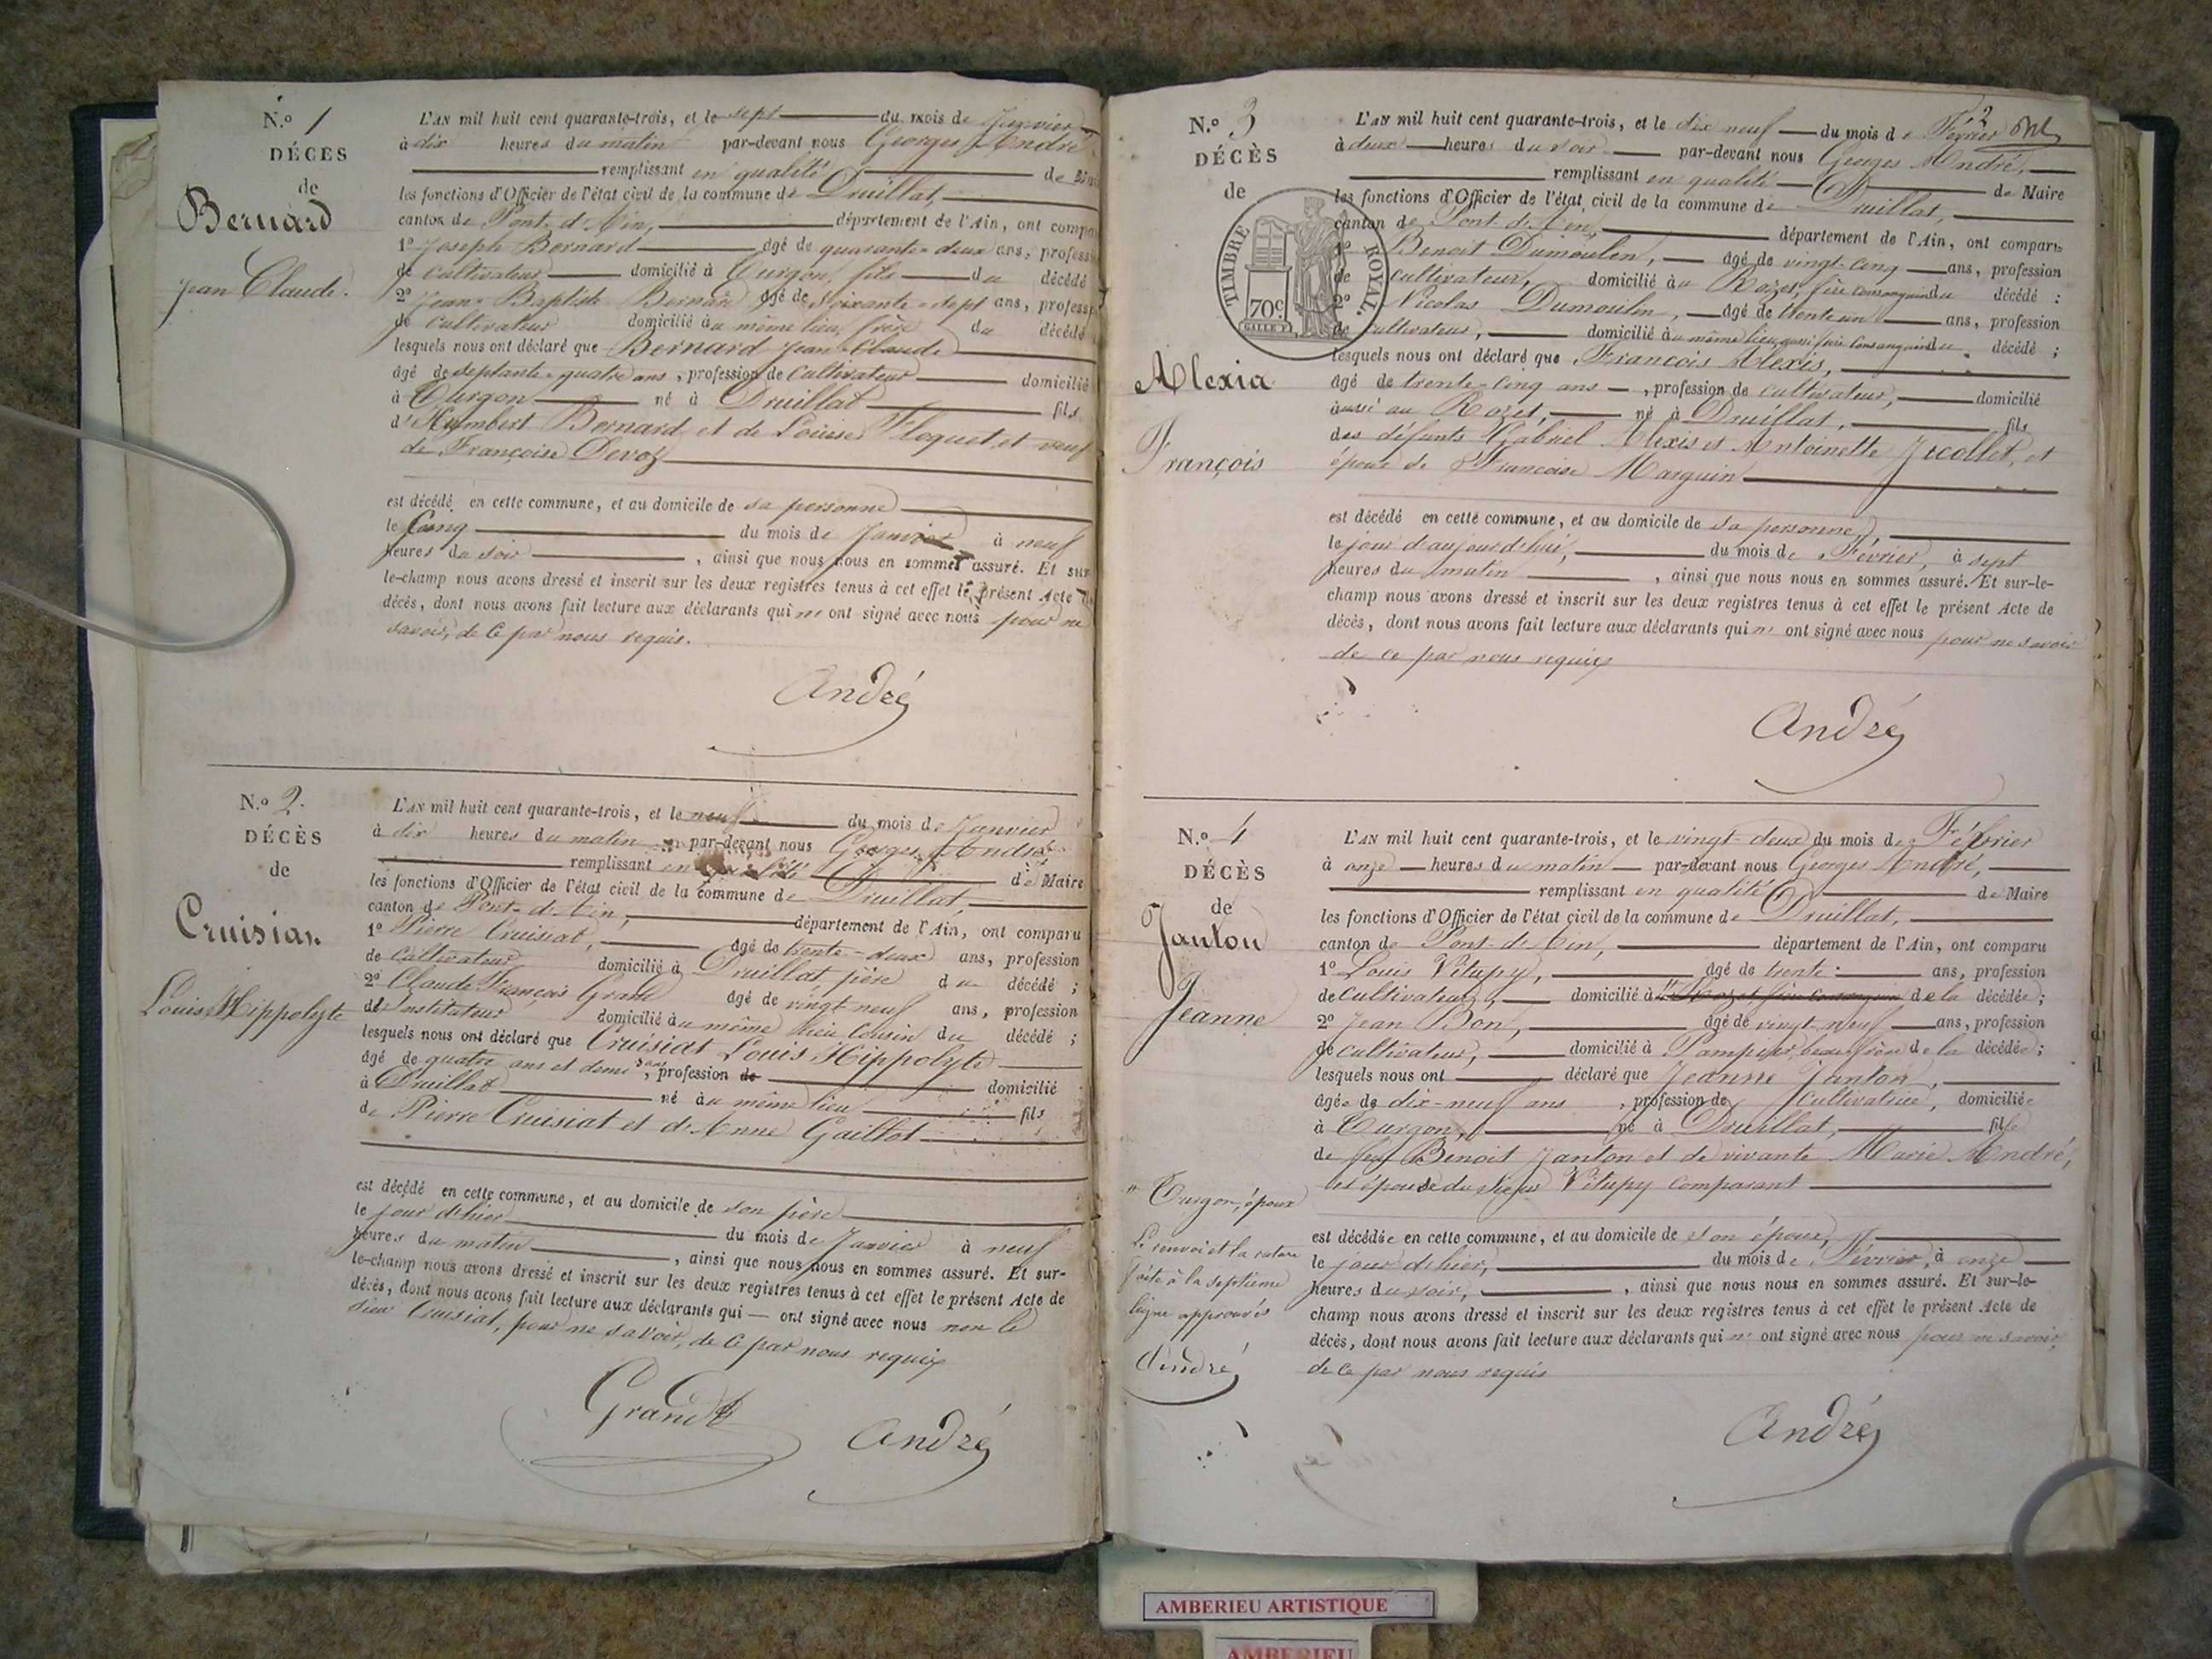 N.º 1
DÉCÈS
de
Bernard
Jean Claude.
L'AN mil huit cent quarante-trois, et le sept du mois de Janvier
à dix heures du matin par-devant nous Georges André
remplissant en qualité de
les fonctions d'Officier de l'état civil de la commune de Druillat,
canton de Pont-d'Ain, département de l'Ain, ont compa
1º Joseph Bernard âgé de quarante-deux ans, profess
de cultivateur domicilié à Turgon, fils du décédé
2º Jean-Baptiste Bernard âgé de soixante-sept ans, profess
de cultivateur domicilié au même lieu, frère du décédé
lesquels nous ont déclaré que Bernard Jean Claude
âgé de septante-quatre ans, profession de Cultivateur domicilié
à Turgon né à Druillat fils
d'Humbert Bernard et de Louise Floquet et veuf
de Françoise Devoz
est décédé en cette commune, et au domicile de sa personne
le Cinq du mois de Janvier à neuf
heures du soir, ainsi que nous nous en sommes assuré. Et sur
le-champ nous avons dressé et inscrit sur les deux registres tenus à cet effet le présent Acte de
décès, dont nous avons fait lecture aux déclarants qui n'ont signé avec nous pour ne
savoir, de ce par nous requis.
André
N.º 2.
DÉCÈS
de
Cruisiat
Louis Hippolyte
L'AN mil huit cent quarante-trois, et le neuf du mois de Janvier
à dix heures du matin par-devant nous Georges André
remplissant en qualité de Maire
les fonctions d'Officier de l'état civil de la commune de Druillat,
canton de Pont-d'Ain, département de l'Ain, ont comparu
1º Pierre Cruisiat, âgé de trente-deux ans, profession
de cultivateur domicilié à Druillat père du décédé ;
2º Claude François Grand âgé de vingt neuf ans, profession
de Instituteur domicilié au même lieu Cousin du décédé ;
lesquels nous ont déclaré que Cruisiat Louis Hippolyte
âgé de quatre ans et demi, profession de domicilié
à Druillat né au même lieu fils
de Pierre Cruisiat et d'Anne Gaillot
est décédé en cette commune, et au domicile de son père
le jour d'hier du mois de Janvier à neuf
heures du matin, ainsi que nous nous en sommes assuré. Et sur-
le-champ nous avons dressé et inscrit sur les deux registres tenus à cet effet le présent Acte de
décès, dont nous avons fait lecture aux déclarants qui — ont signé avec nous non le
sieur Cruisiat, pour ne savoir, de ce par nous requis
Grand
André
2
N.º 3
DÉCÈS
de
TIMBRE ROYAL.
70c
Alexia
François
L'AN mil huit cent quarante-trois, et le dix neuf du mois de Février
à deux heures du soir par-devant nous Georges André,
remplissant en qualité de Maire
les fonctions d'Officier de l'état civil de la commune de Druillat,
canton de Pont-d'Ain, département de l'Ain, ont comparu
1º Benoit Dumoulin, âgé de vingt-cinq ans, profession
de cultivateur, domicilié au Rozet, frère consanguin du décédé ;
2º Nicolas Dumoulin, âgé de trente un ans, profession
de cultivateur, domicilié au même lieu, aussi frère consanguin du décédé ;
lesquels nous ont déclaré que François Alexis,
âgé de trente-cinq ans, profession de cultivateur, domicilié
aussi au Rozet, né à Druillat, fils
des défunts Gabriel Alexis et Antoinette Jecollet, et
époux de Françoise Marguin
est décédé en cette commune, et au domicile de sa personne,
le jour d'aujourd'hui, du mois de Février, à sept
heures du matin, ainsi que nous nous en sommes assuré. Et sur-le-
champ nous avons dressé et inscrit sur les deux registres tenus à cet effet le présent Acte de
décès, dont nous avons fait lecture aux déclarants qui n'ont signé avec nous pour ne savoir
de ce par nous requis
André
N.º 4
DÉCÈS
de
Janton
Jeanne
L'AN mil huit cent quarante-trois, et le vingt-deux du mois de Février
à onze heures du matin par-devant nous Georges André,
remplissant en qualité de Maire
les fonctions d'Officier de l'état civil de la commune de Druillat,
canton de Pont-d'Ain, département de l'Ain, ont comparu
1º Louis Vitupy, âgé de trente ans, profession
de cultivateur, domicilié à de la décédée ;
2º Jean Bon, âgé de vingt neuf ans, profession
de cultivateur, domicilié à Pampier, beau frère de la décédée ;
lesquels nous ont déclaré que Jeanne Janton,
âgée de dix-neuf ans, profession de Cultivatrice, domiciliée
à Turgon, né à Druillat, fille
de feu Benoit Janton et de vivante Marie André,
et épouse du sieur Vitupy comparant
est décédée en cette commune, et au domicile de son époux,
le jour d'hier, du mois de Février, à onze
heures du soir, ainsi que nous nous en sommes assuré. Et sur-le-
champ nous avons dressé et inscrit sur les deux registres tenus à cet effet le présent Acte de
décès, dont nous avons fait lecture aux déclarants qui n'ont signé avec nous pour ne savoir,
de ce par nous requis
André
" Turgon, époux
Le renvoi et la rature
faite à la septième
ligne approuvés
André
AMBERIEU ARTISTIQUE
AMBERIEU